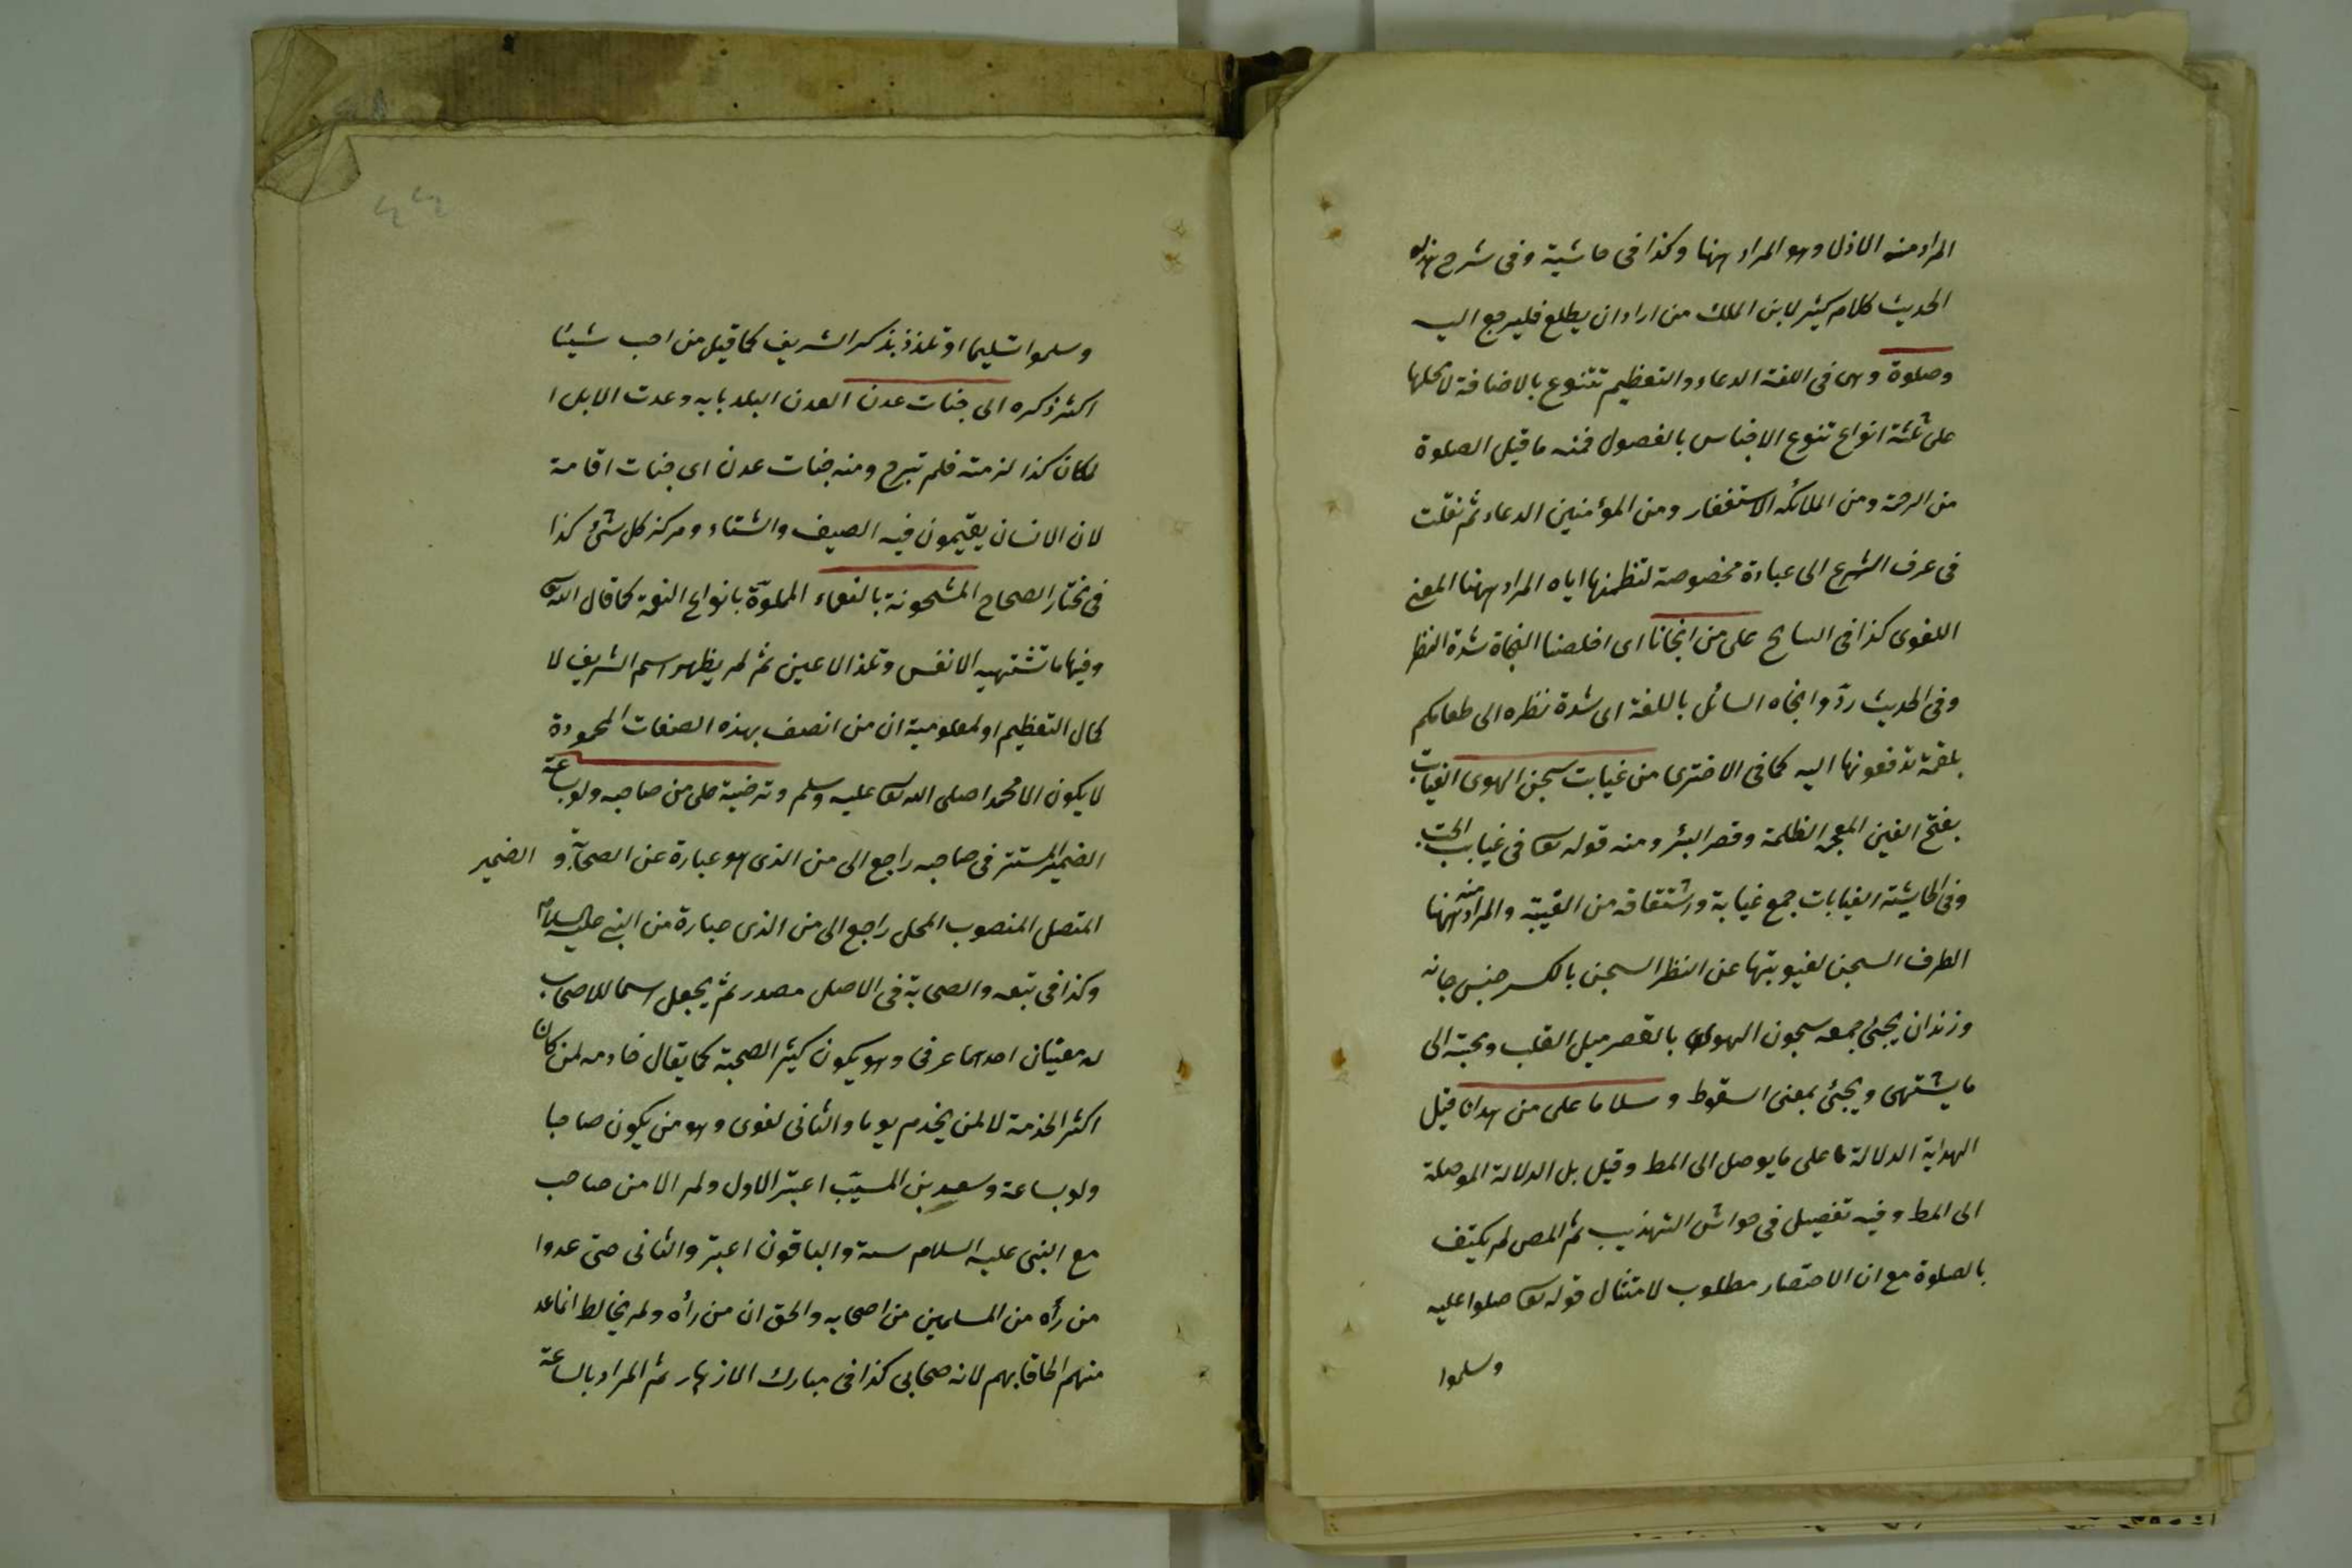 المراد منه الاذل وهو المراد ههنا وكذا فى حاشية وفى شرح هذه
الحديث كلام كثير لابن الملك من اراد ان يطلع فليرجع اليه
وصلوة وهى فى اللغة الدعاء والتعظيم تتنوع بالاضافة لمحلها
على ثلثة انواع تنوع الاجناس بالفصول فمنه ما قيل الصلوة
من الرحمة ومن الملائكة الاستغفار ومن المؤمنين الدعاء ثم نقلت
فى عرف الشرع الى عبادة مخصوصة لتظمنها اياه المراد ههنا المعنى
اللغوى كذا فى السايح على من انجانا اى اخلصنا النجاة شدة النظر
وفى الحديث ردّوا نجاه السائل باللغة اى شدة نظره الى طعامكم
بلقمة تدفعونها اليه كما فى الاخترى من غيابت سجن الهوى الغيابت
بفتح الغين المعجمة الظلمة وقصر البئر ومنه قوله تعا فى غيابت الجب
وفى الحاشية الغيابات جمع غيابة واشتقاقه من الغيبة والمراد منه ههنا
الطرف السجن لغيوبتها عن النظر السجن بالكسر حبس جانه
وزندان يجئ جمعه سجون الهوى بالقصر ميل القلب ومحبته الى
ما يشتهى ويجئ بمعنى السقوط وسلاما على من هدانا قيل
الهداية الدلالة على ما يوصل الى المط وقيل بل الدلالة الموصلة
الى المط وفيه تفصيل فى حواش التهذيب ثم المص لم يكتف
بالصلوة مع ان الاختصار مطلوب لامتثال قوله تعا صلوا عليه
وسلموا
وسلموا تسليما او تلذذ بذكر الشريف كما قيل من احب شيئا
اكثر ذكره الى جنات عدن العدن البلد بابه وعدت الابل ا
لمكان كذا لزمته فلم تبرح ومنه جنات عدن اى جنات اقامة
لان الانسان يقيمون فيه الصيف والشتاء ومركز كل شئ كذا
فى مختار الصحاح المشحونة بالنعماء المملوّة بانواع النعمة كما قال الله تعا
وفيها ما تشتهيه الانفس وتلذ الاعين ثم لم يظهر اسم الشريف لا
كمال التعظيم او لمعلومية ان من اتصف بهذه الصفات المحمودة
لا يكون الا محمدا صلى الله تعا عليه وسلم وترضية على من صاحبه ولو بساعة
الضمير المستتر فى صاحبه راجع الى من الذى هو عبارة عن الصحابة والضمير
المتصل المنصوب المحل راجع الى من الذى عبارة من النبى عليه السلام
وكذا فى تبعه والصحابة فى الاصل مصدر ثم يجعل اسما للاصحاب
له معنيان احدهما عرفى وهو يكون كثير الصحبة كما يقال خادمه لمن كان
اكثر الخذمة لا لمن يخدم يوما والثانى لغوى وهو من يكون صاحبا
ولو بساعة وسعيد بن المسيّب اعتبر الاول ولم الا من صاحب
مع النبى عليه السلام سنة والباقون اعتبر والثانى حتى عدوا
من رأه من المسلمين من اصحابه والحق ان من رأه ولم يخالط انما عد
منهم الحاقا بهم لانه صحابى كذا فى مبارك الازهار ثم المراد بالساعة